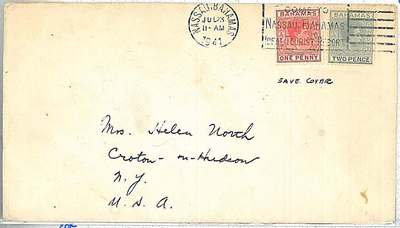 NASSAU, BAHAMAS
11-AM
1941
COME TO
NASSAU, BAHAMAS
IDEAL TOURIST RESORT
BAHAMAS
ONE PENNY
BAHAMAS
TWO PENCE
SAVE COVER
Mrs. Helen North
Croton-on-Hudson
N.Y.
U.S.A.